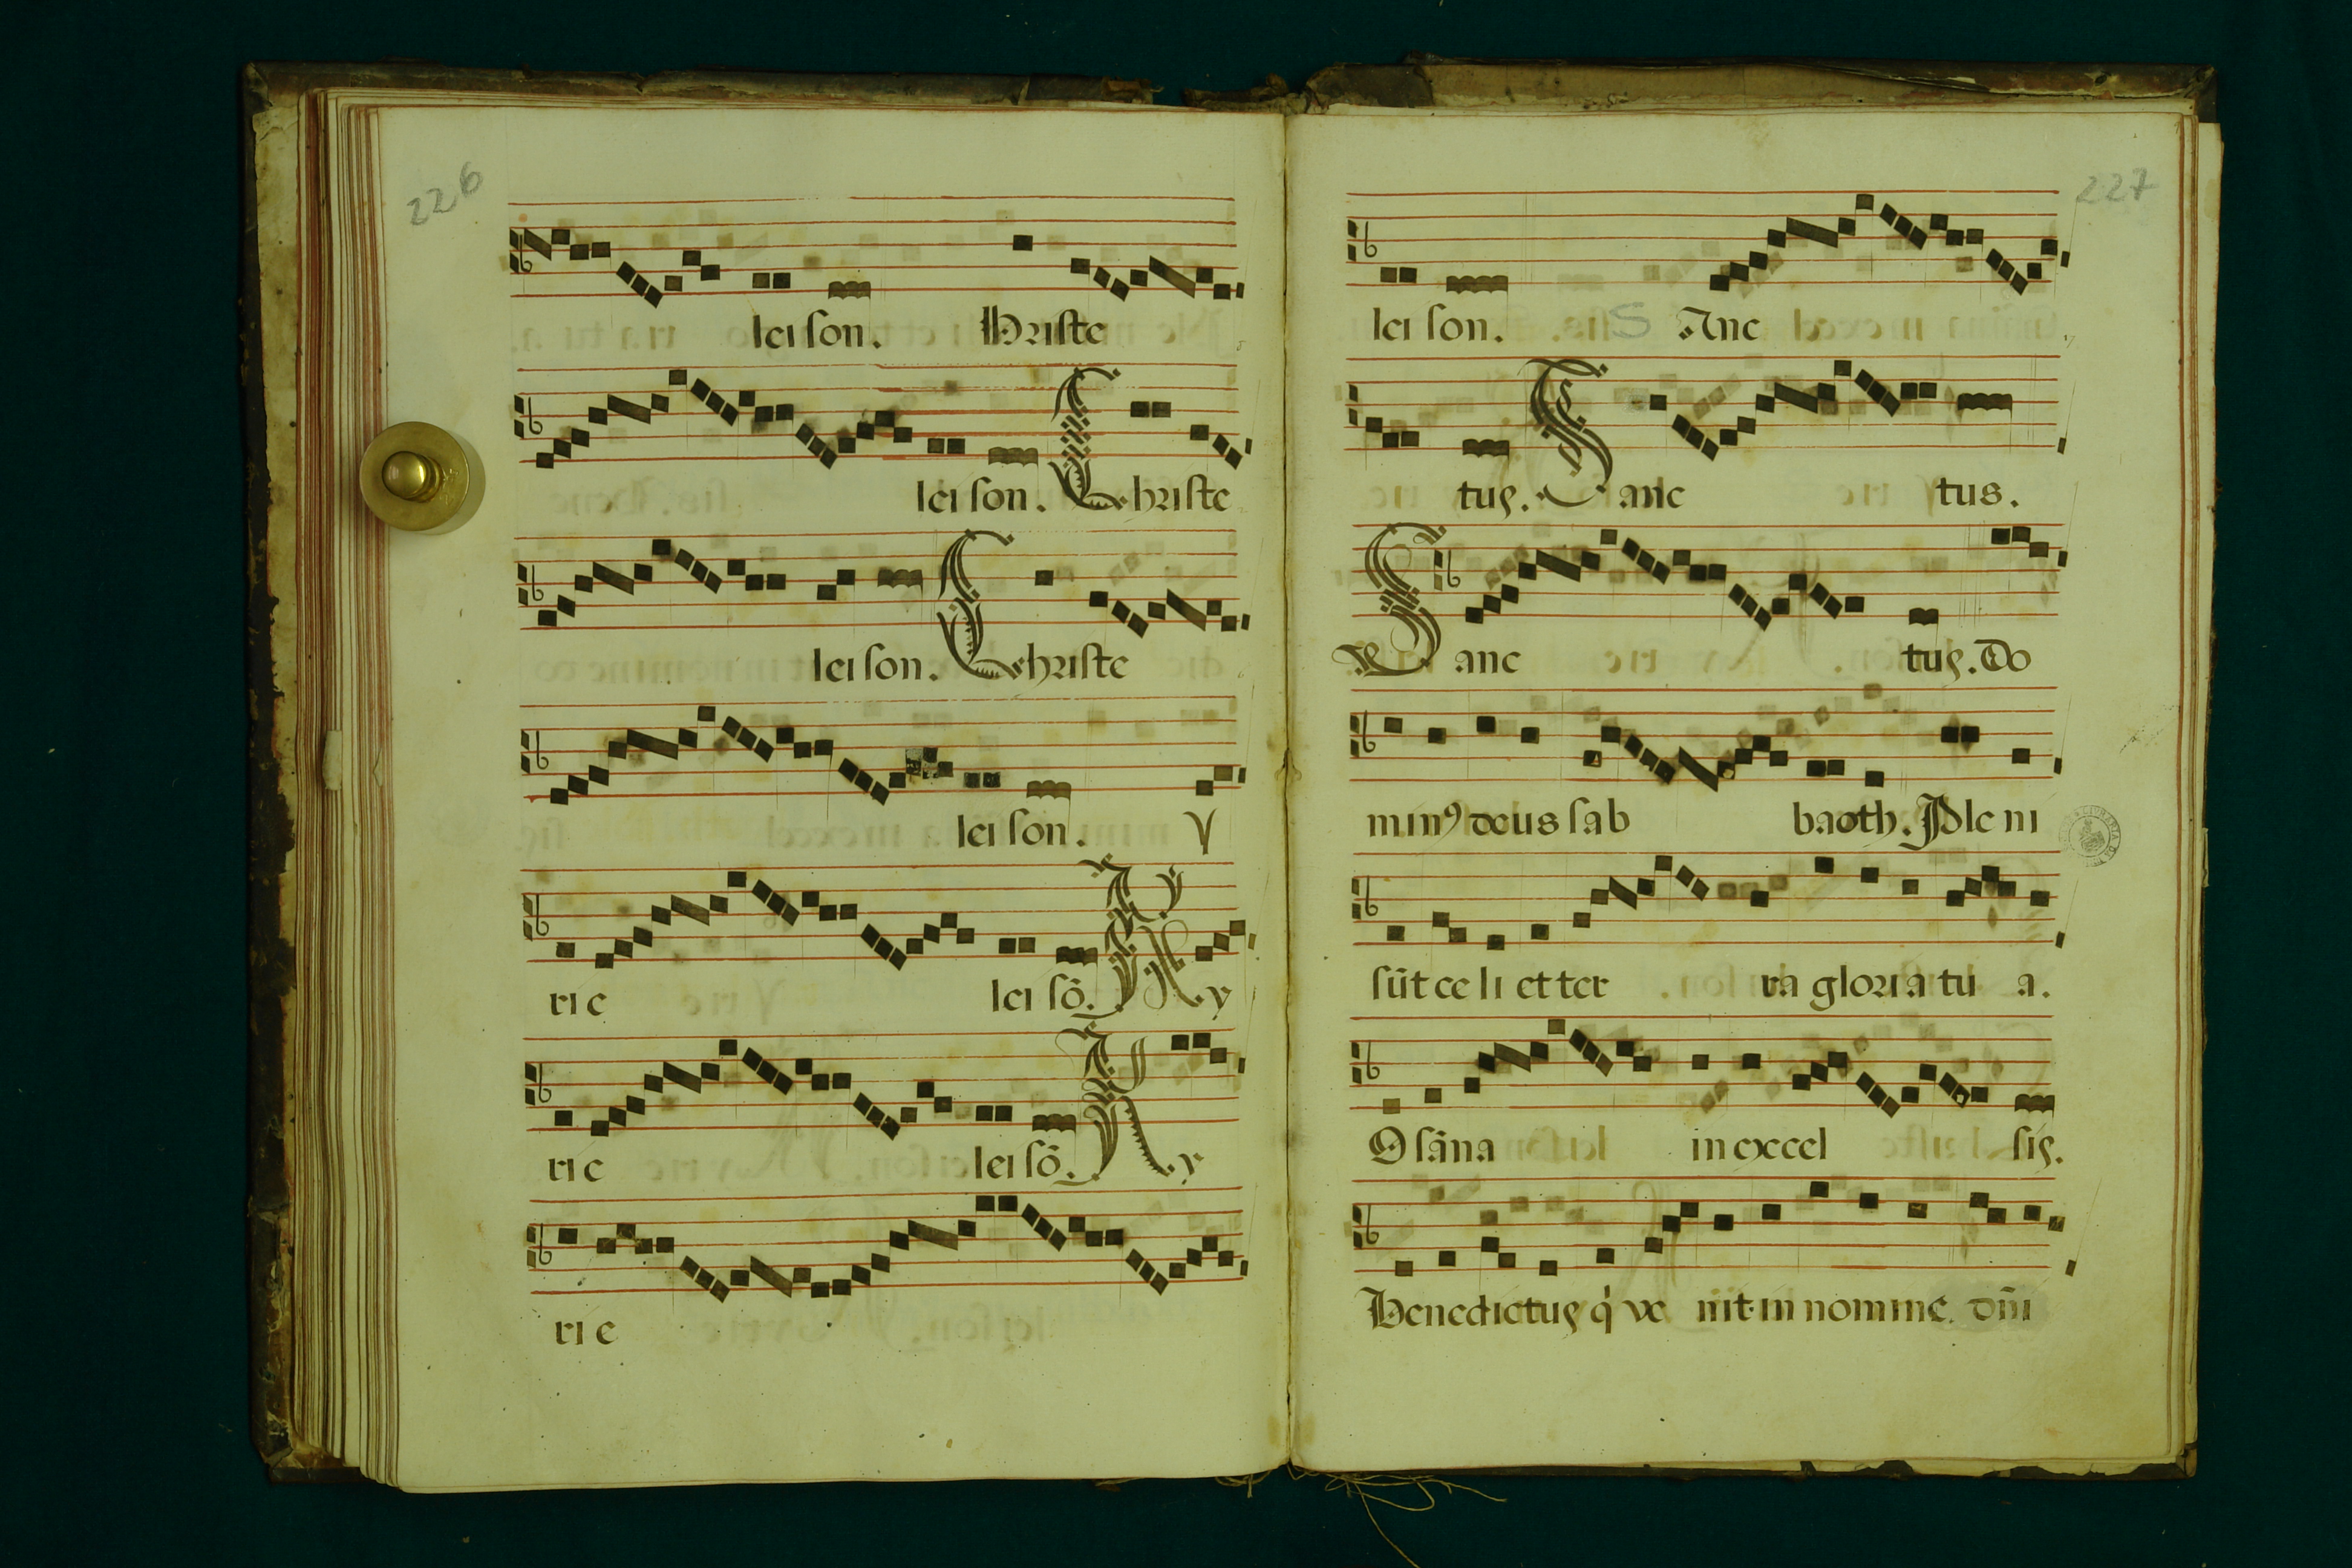 226
lei ſon. hriſte
lei ſon. Chriſte
lei ſon. Chriſte
lei ſon. y
ri e lei ſõ. Ky
ri e lei ſõ. Ky
ri e
227
lei ſon. S Anc
tus. Sanc tus.
Sanc tus. Do
minꝰ deus ſab baoth. Ple ni
ſũt ce li et ter ra gloria tu a.
O ſãna in excel ſis.
Benedictus q̇ ve nit in nomine dñi